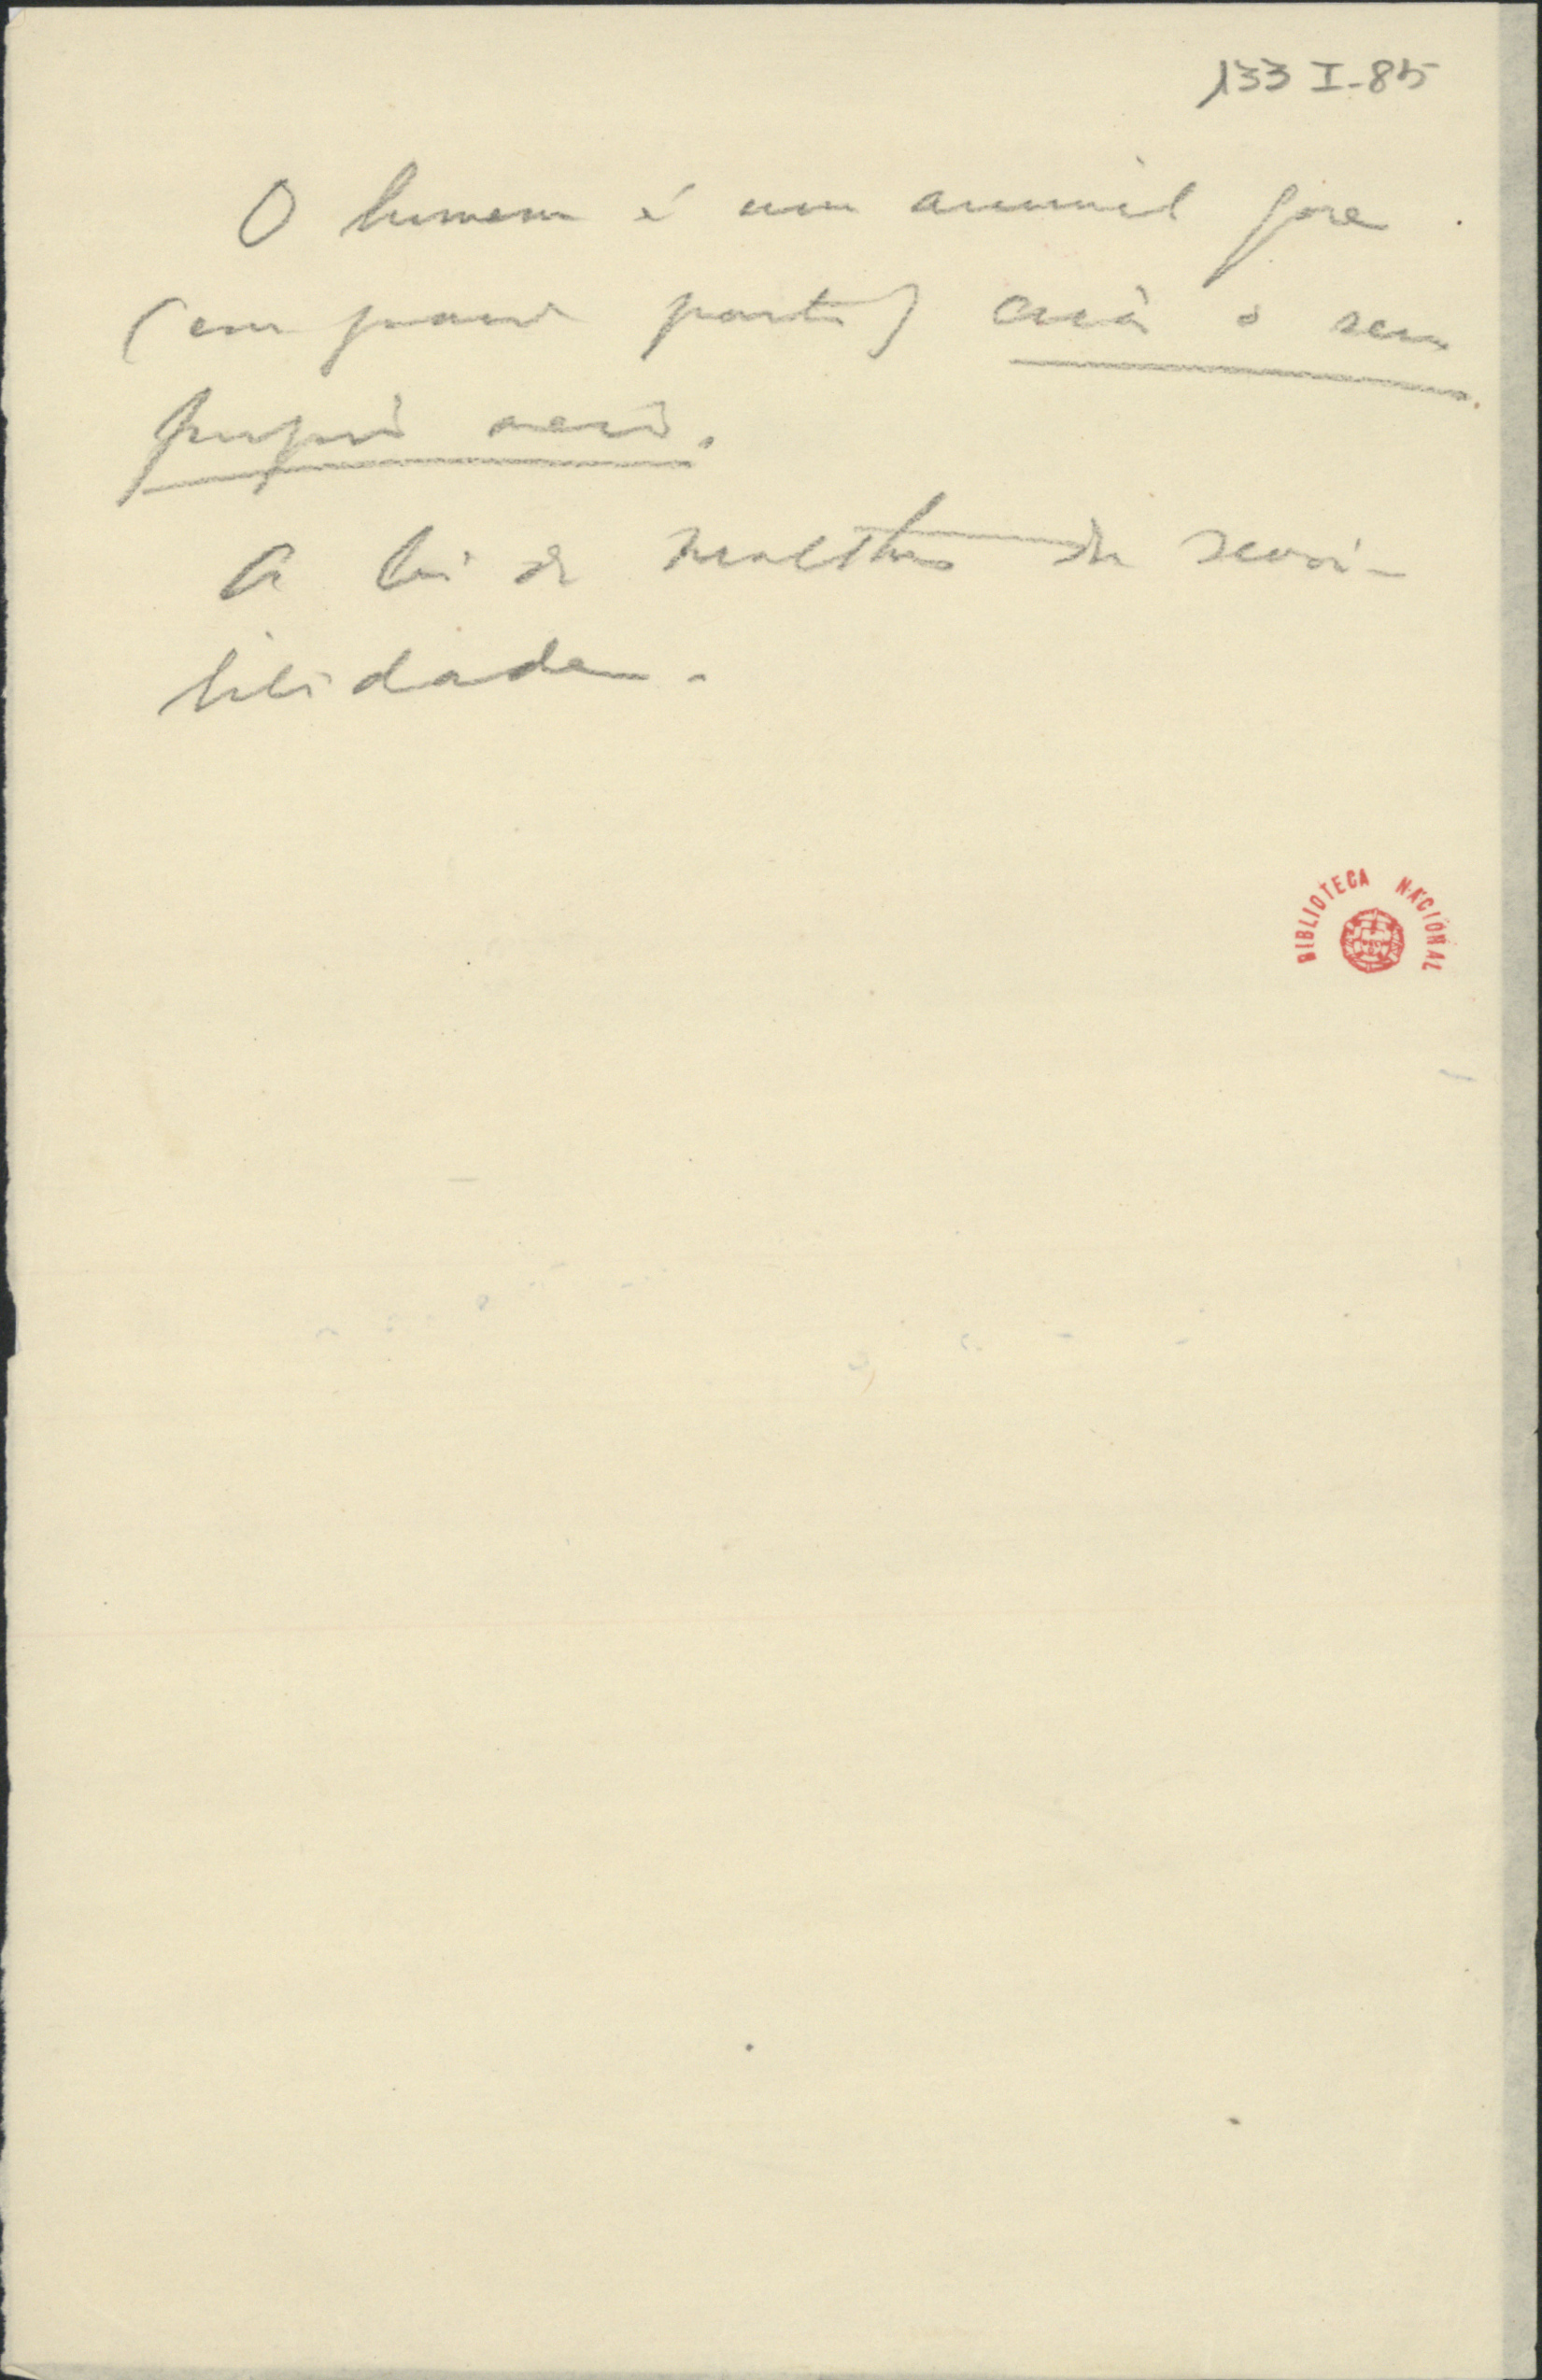 133 I-85
O homem é um animal que
(em grande parte) cria o seu
proprio meio.
A lei de Malthus da sensi-
bilidade.
BIBLIOTECA NACIONAL